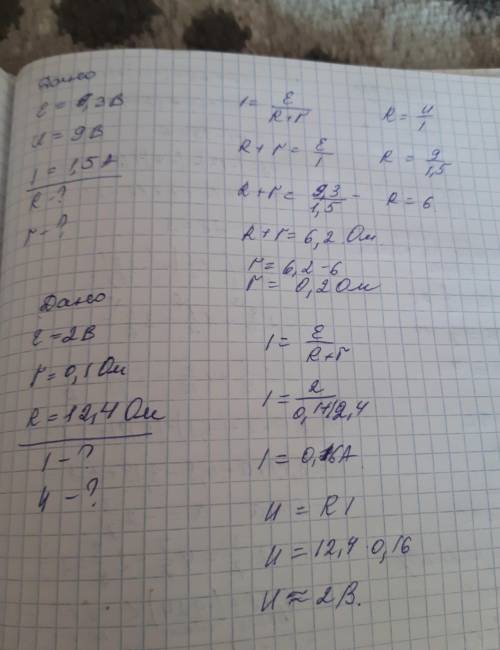 Дано
ε = 9,3 В
U = 9 В
I = 1,5 А
R - ?
r - ?
I = ε / R+r
R + r = ε / I
R + r = 9,3 / 1,5 -
R + r = 6,2 Ом
r = 6,2 - 6
r = 0,2 Ом
R = U / I
R = 9 / 1,5
R = 6
Дано
ε = 2 В
r = 0,1 Ом
R = 12,4 Ом
I - ?
U - ?
I = ε / R+r
I = 2 / 0,1+12,4
I = 0,16 А
U = R I
U = 12,4 · 0,16
U ≈ 2 В.